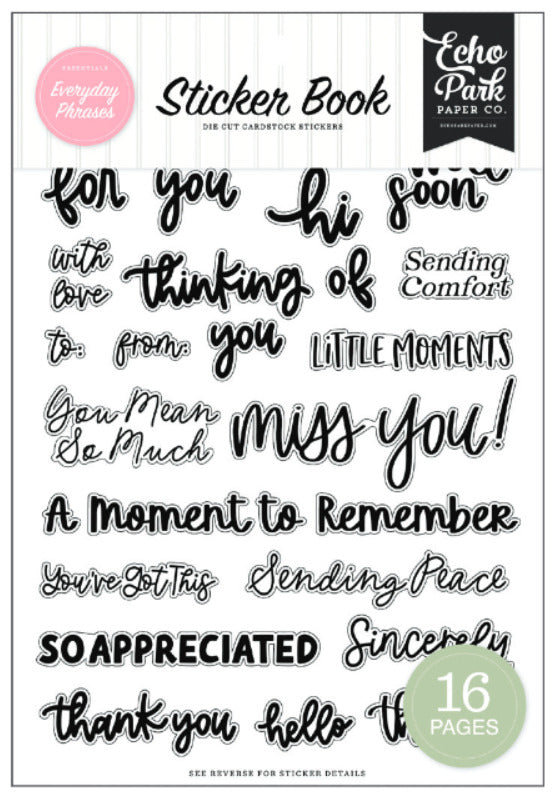 ESSENTIALS
Everyday
Phrases
Sticker Book
DIE CUT CARDSTOCK STICKERS
Echo
Park
PAPER CO.
ECHOPARKPAPER.COM
for you
hi
soon
with
love
thinking of
you
Sending
Comfort
to:
from:
LITTLE MOMENTS
You Mean
So Much
miss you!
A Moment to Remember
You've Got This
Sending Peace
SO APPRECIATED
Sincerely
thank you
hello
16
PAGES
SEE REVERSE FOR STICKER DETAILS